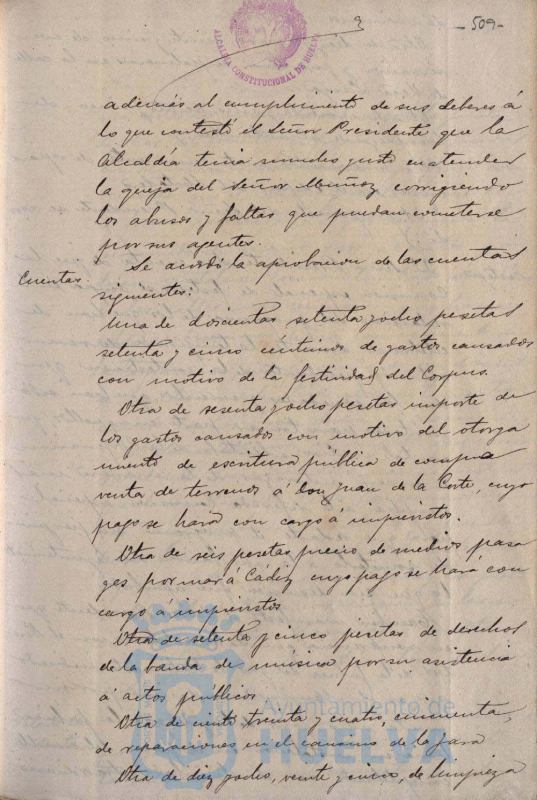 ALCALDÍA CONSTITUCIONAL DE HUELVA
-509-
además al cumplimiento de sus deberes á
lo que contestó el Señor Presidente que la
Alcaldía tenia mucho gusto en atender
la queja del Señor Muñoz corrigiendo
los abusos y faltas que puedan cometerse
por sus agentes.
Cuentas
Se acordó la aprobacion de las cuentas
siguientes:
Una de doscientas setenta y ocho pesetas
setenta y cinco centimos de gastos causados
con motivo de la festividad del Corpus.
Otra de sesenta y ocho pesetas importe de
los gastos causados con motivo del otorga
miento de escritura pública de compra
venta de terrenos á Don Juan de la Corte, cuyo
pago se hará con cargo á imprevistos.
Otra de seis pesetas precio de medios pasa
ges por mar á Cádiz cuyo pago se hará con
cargo á imprevistos
Otra de setenta y cinco pesetas de derechos
de la banda de música por su asistencia
á actos públicos
Otra de ciento treinta y cuatro, cincuenta,
de reparaciones en el camino de la
Otra de diez y ocho, veinte y cinco, de limpieza
Ayuntamiento de
HUELVA